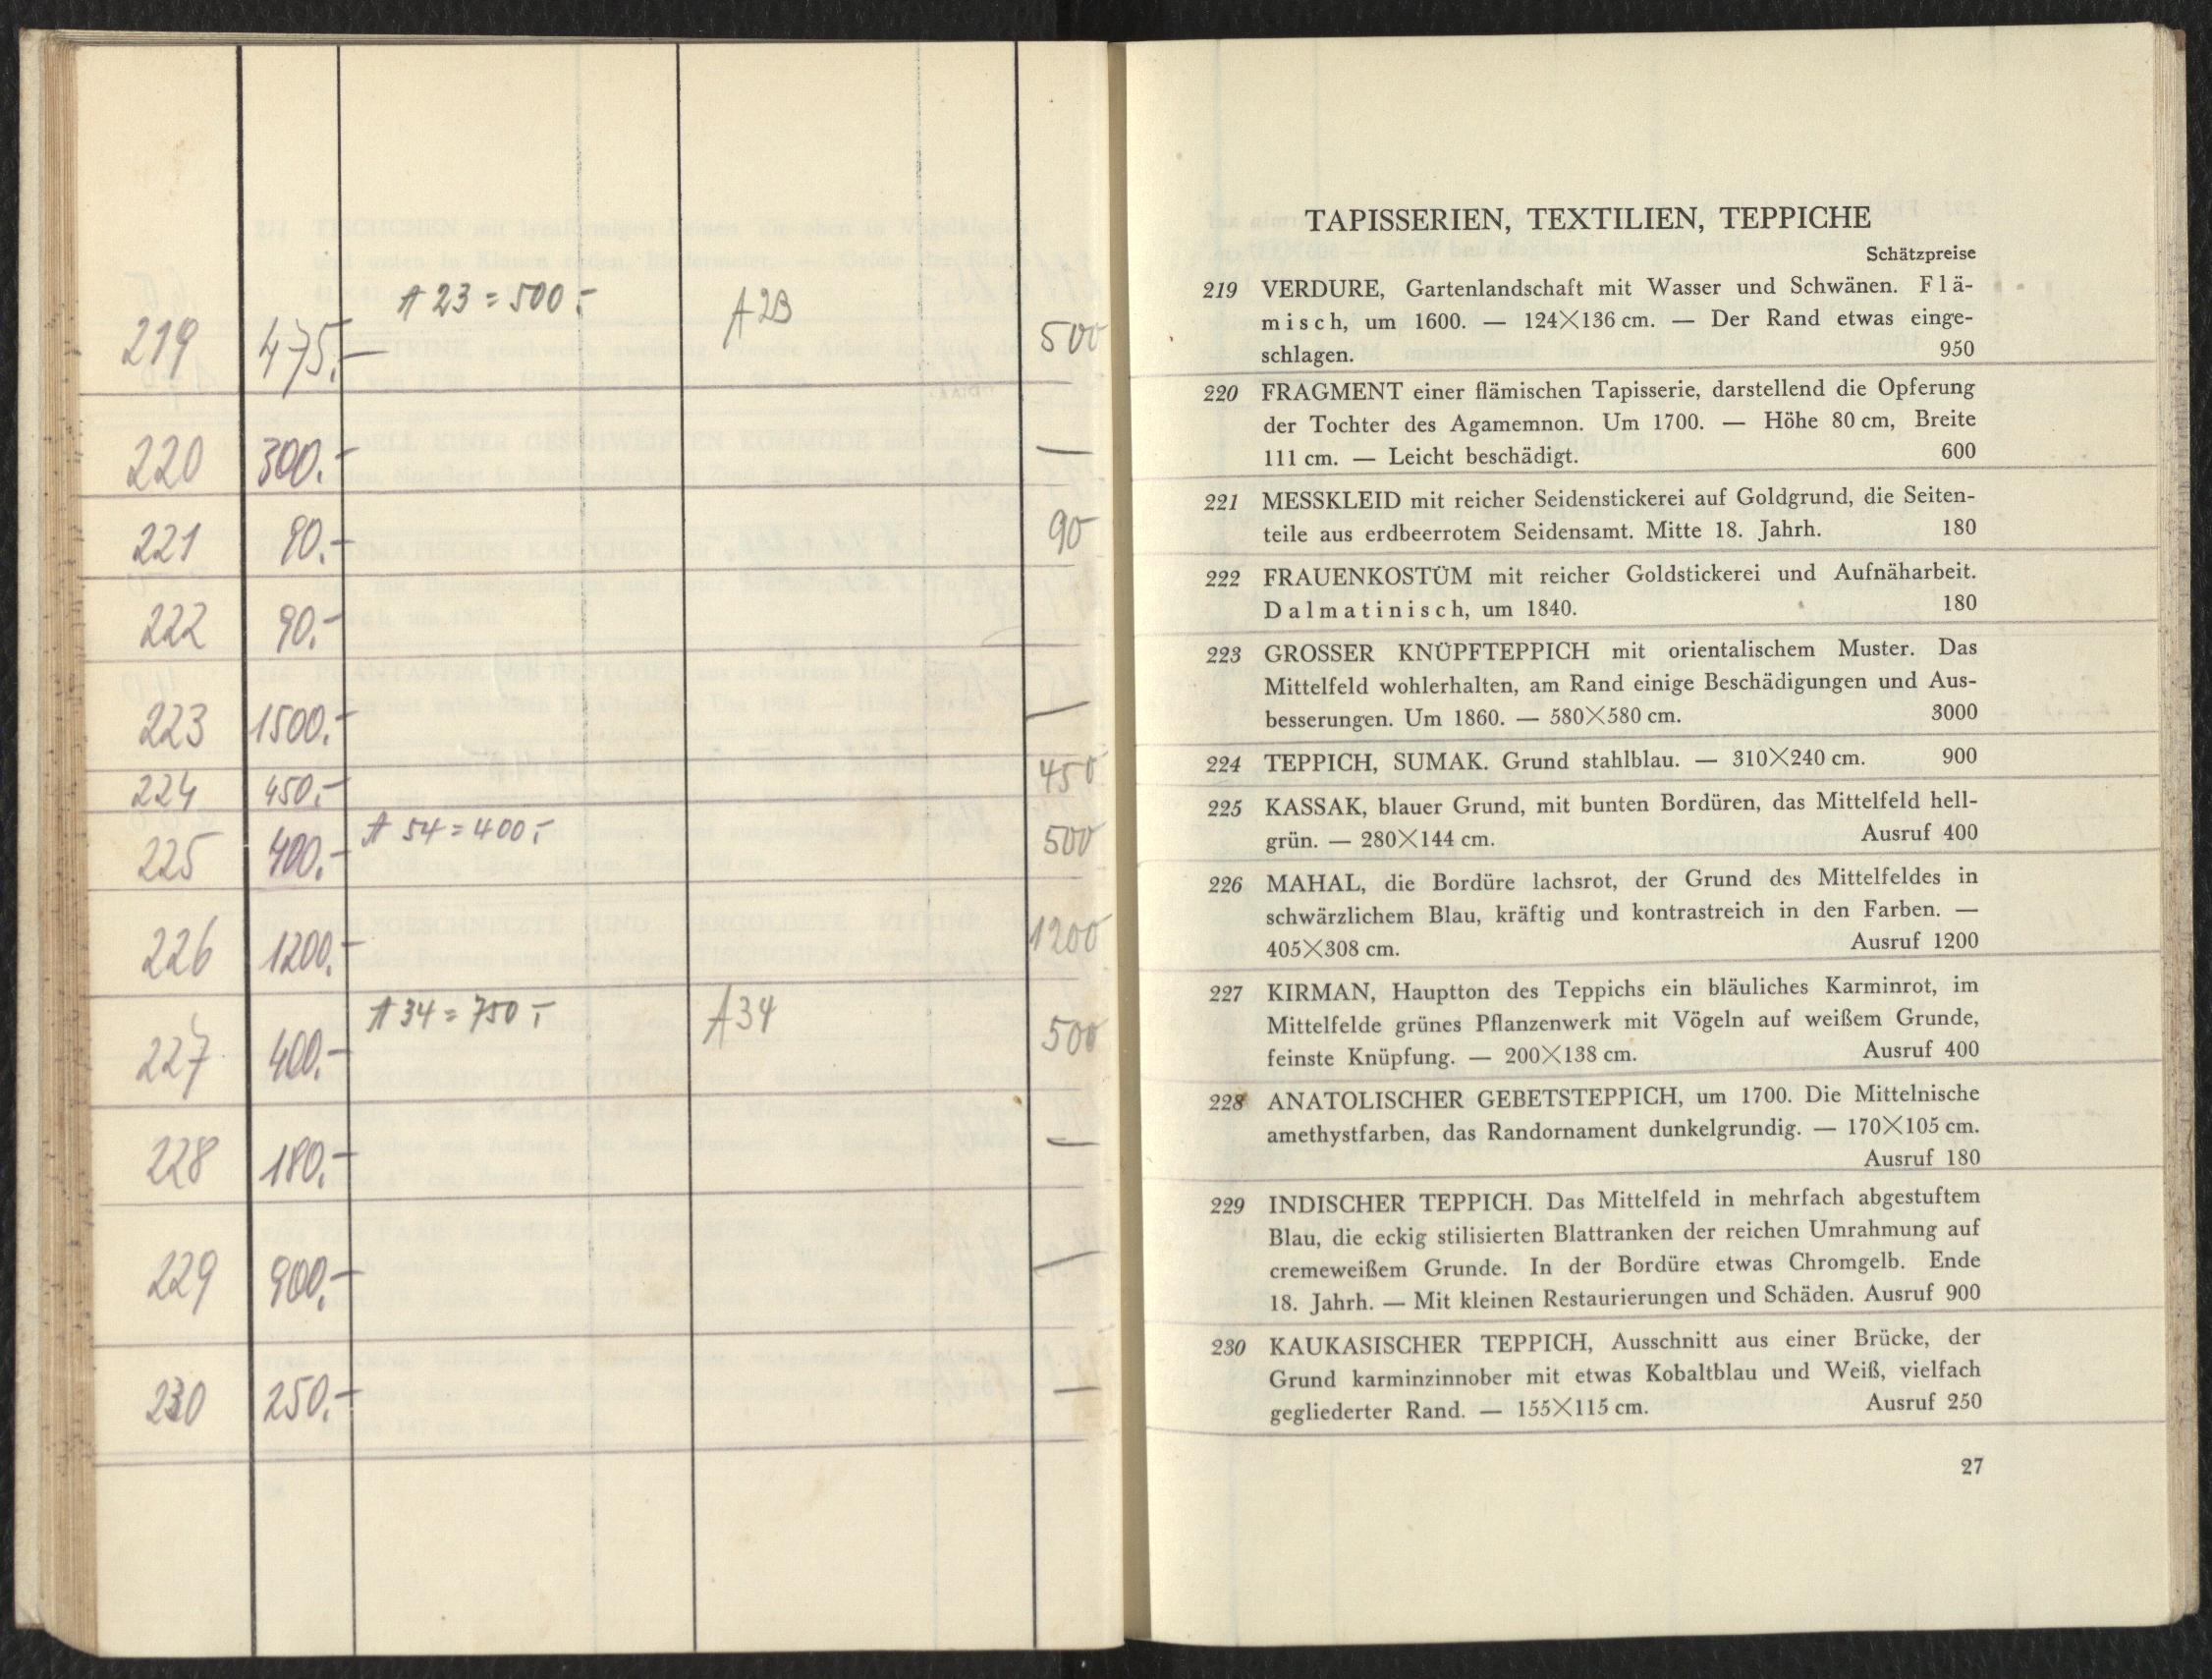 A 23 = 500.-
A 23
219 475.- 500
220 300.- —
221 90.- 90
222 90.-
223 1500.- —
224 450.- 450
A 54 = 400.-
225 400.- 500
226 1200.- 1200
A 34 = 750.-
A 34
227 400.- 500
228 180.- —
229 900.- —
230 250.- —
TAPISSERIEN, TEXTILIEN, TEPPICHE
Schätzpreise
219 VERDURE, Gartenlandschaft mit Wasser und Schwänen. Flä-
misch, um 1600. — 124×136 cm. — Der Rand etwas einge-
schlagen. 950
220 FRAGMENT einer flämischen Tapisserie, darstellend die Opferung
der Tochter des Agamemnon. Um 1700. — Höhe 80 cm, Breite
111 cm. — Leicht beschädigt. 600
221 MESSKLEID mit reicher Seidenstickerei auf Goldgrund, die Seiten-
teile aus erdbeerrotem Seidensamt. Mitte 18. Jahrh. 180
222 FRAUENKOSTÜM mit reicher Goldstickerei und Aufnäharbeit.
Dalmatinisch, um 1840. 180
223 GROSSER KNÜPFTEPPICH mit orientalischem Muster. Das
Mittelfeld wohlerhalten, am Rand einige Beschädigungen und Aus-
besserungen. Um 1860. — 580×580 cm. 3000
224 TEPPICH, SUMAK. Grund stahlblau. — 310×240 cm. 900
225 KASSAK, blauer Grund, mit bunten Bordüren, das Mittelfeld hell-
grün. — 280×144 cm. Ausruf 400
226 MAHAL, die Bordüre lachsrot, der Grund des Mittelfeldes in
schwärzlichem Blau, kräftig und kontrastreich in den Farben. —
405×308 cm. Ausruf 1200
227 KIRMAN, Hauptton des Teppichs ein bläuliches Karminrot, im
Mittelfelde grünes Pflanzenwerk mit Vögeln auf weißem Grunde,
feinste Knüpfung. — 200×138 cm. Ausruf 400
228 ANATOLISCHER GEBETSTEPPICH, um 1700. Die Mittelnische
amethystfarben, das Randornament dunkelgrundig. — 170×105 cm.
Ausruf 180
229 INDISCHER TEPPICH. Das Mittelfeld in mehrfach abgestuftem
Blau, die eckig stilisierten Blattranken der reichen Umrahmung auf
cremeweißem Grunde. In der Bordüre etwas Chromgelb. Ende
18. Jahrh. — Mit kleinen Restaurierungen und Schäden. Ausruf 900
230 KAUKASISCHER TEPPICH, Ausschnitt aus einer Brücke, der
Grund karminzinnober mit etwas Kobaltblau und Weiß, vielfach
gegliederter Rand. — 155×115 cm. Ausruf 250
27